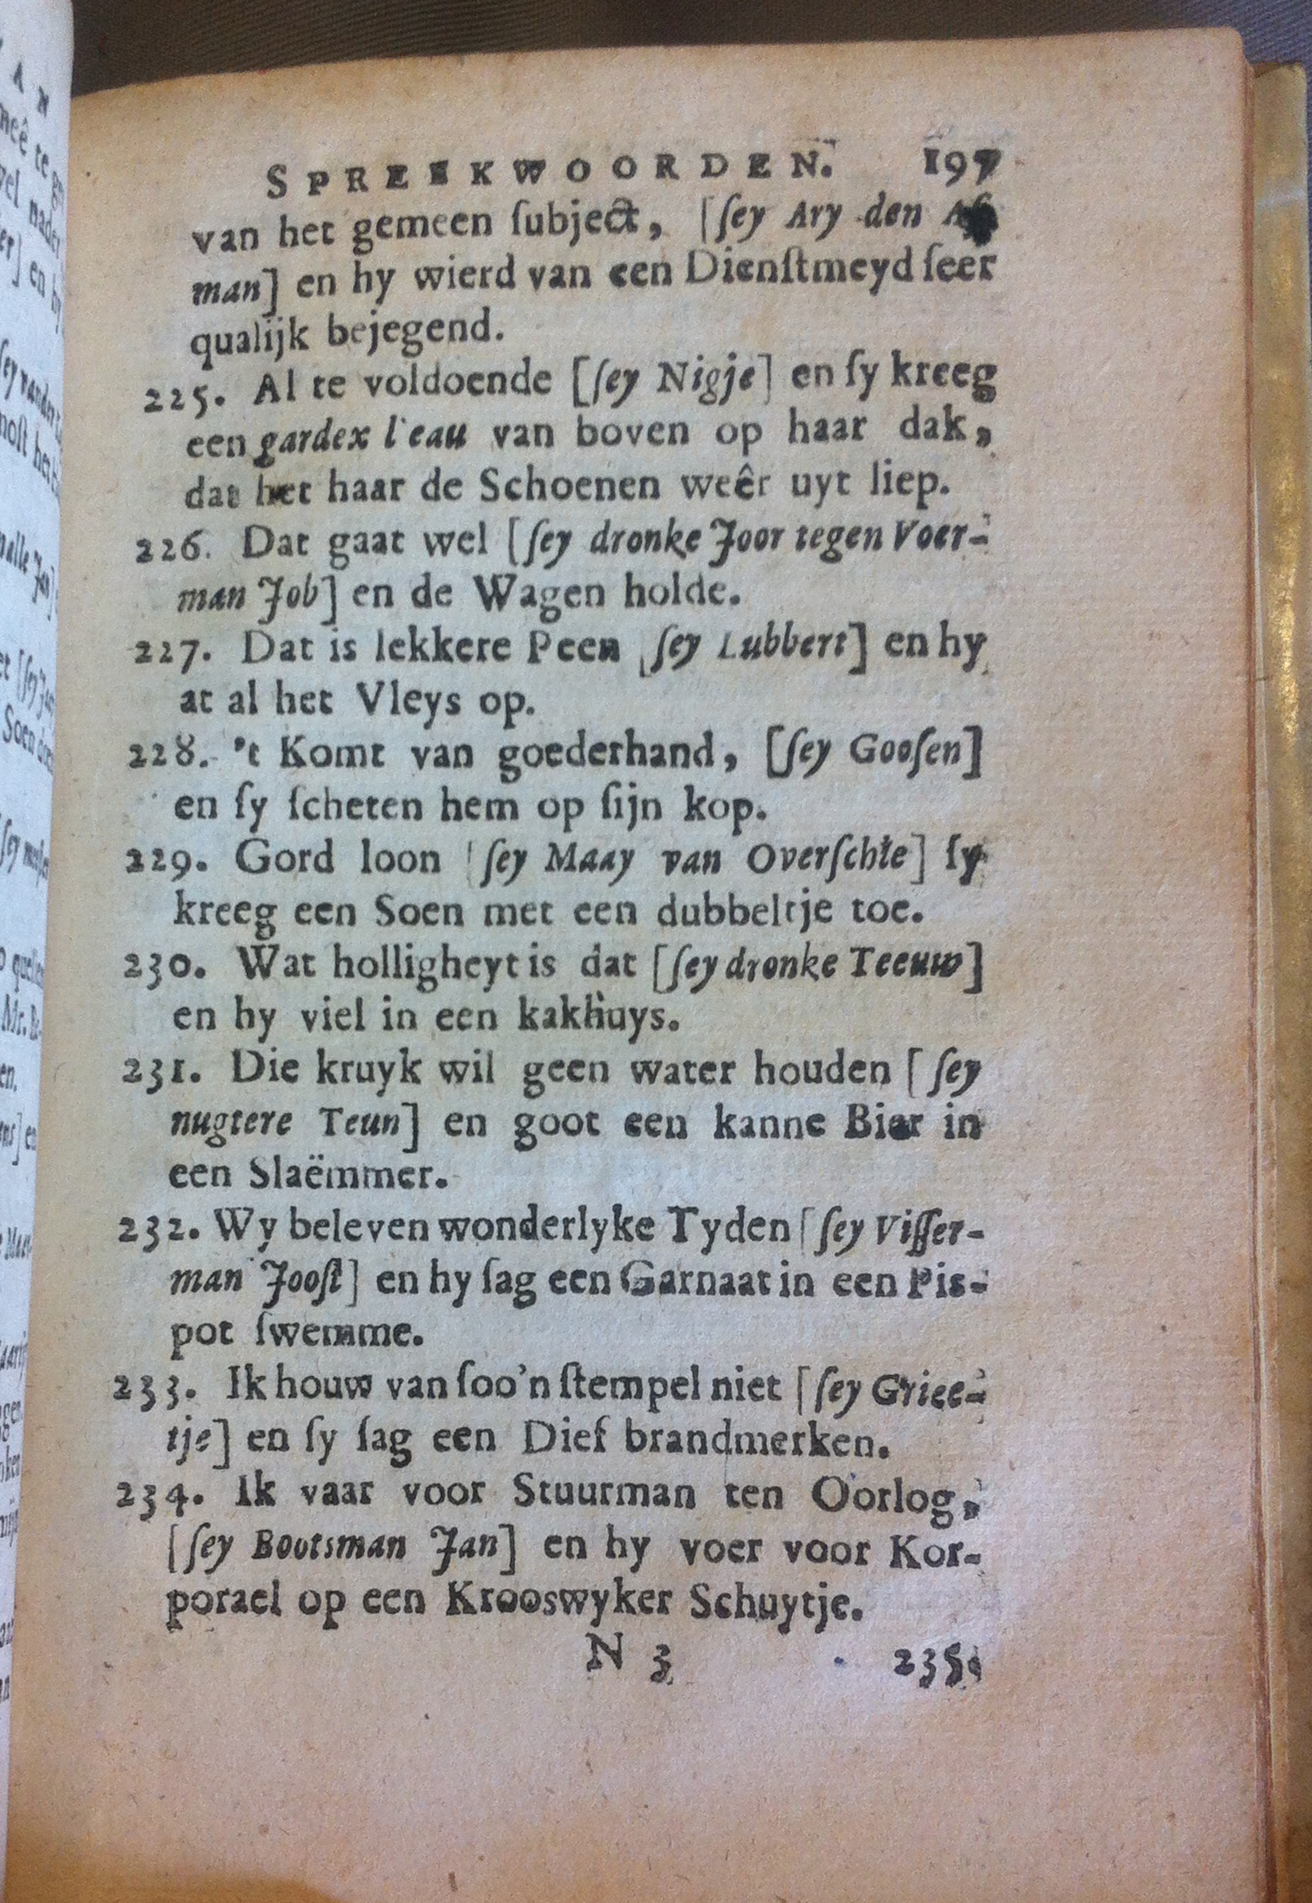 SPREEKWOORDEN. 197
van het gemeen ſubject, [ſey Ary den Aſ
man] en hy wierd van een Dienſtmeyd ſeer
qualijk bejegend.
225. Al te voldoende [ſey Nigje] en ſy kreeg
een gardex l'eau van boven op haar dak,
dat het haar de Schoenen weêr uyt liep.
226. Dat gaat wel [ſey dronke Joor tegen Voer-
man Job] en de Wagen holde.
227. Dat is lekkere Peen [ſey Lubbert] en hy
at al het Vleys op.
228. 't Komt van goederhand, [ſey Gooſen]
en ſy ſcheten hem op ſijn kop.
229. Gord loon [ſey Maay van Overſchie] ſy
kreeg een Soen met een dubbeltje toe.
230. Wat holligheyt is dat [ſey dronke Teeuw]
en hy viel in een kakhuys.
231. Die kruyk wil geen water houden [ſey
nugtere Teun] en goot een kanne Bier in
een Slaëmmer.
232. Wy beleven wonderlyke Tyden [ſey Viſſer-
man Jooſt] en hy ſag een Garnaat in een Pis-
pot ſwemme.
233. Ik houw van ſoo'n ſtempel niet [ſey Griee-
tje] en ſy ſag een Dief brandmerken.
234. Ik vaar voor Stuurman ten Oorlog,
[ſey Bootsman Jan] en hy voer voor Kor-
porael op een Krooswyker Schuytje.
N 3 235.